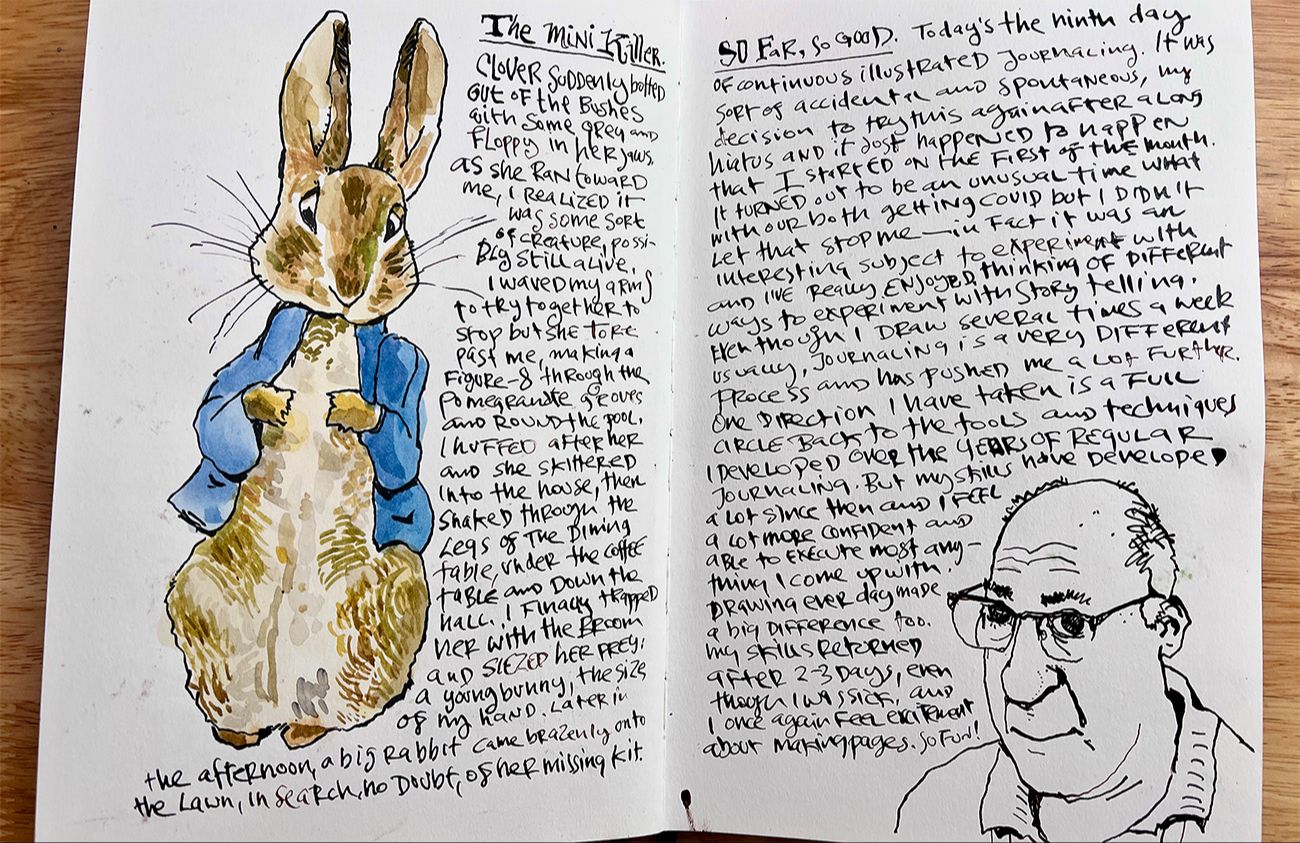 The Mini Killer.
Clover suddenly bolted
out of the bushes
with some grey and
floppy in her jaws.
as she ran toward
me, I realized it
was some sort
of creature, possi-
bly still alive.
I waved my arms
to try to get her to
stop but she tore
past me, making a
Figure-8 through the
pomegranate groves
and round the pool.
I huffed after her
and she skittered
into the house, then
snaked through the
legs of the dining
table, under the coffee
table and down the
hall. I finally trapped
her with the broom
and siezed her prey:
a young bunny, the size
of my hand. Later in
the afternoon, a big rabbit came brazenly onto
the lawn, in search, no doubt, of her missing kit.
So Far, So Good. Today's the ninth day
of continuous illustrated journaling. It was
sort of accidental and spontaneous, my
decision to try this again after a long
hiatus and it just happened to happen
that I started on the first of the month.
It turned out to be an unusual time what
with our both getting covid but I didn't
let that stop me — in fact it was an
interesting subject to experiment with
and I've really enjoyed thinking of different
ways to experiment with story telling.
Even though I draw several times a week
usually, journaling is a very different
process and has pushed me a lot further.
One direction I have taken is a full
circle back to the tools and techniques
I developed over the years of regular
journaling. But my skills have developed
a lot since then and I feel
a lot more confident and
able to execute most any-
thing I come up with.
Drawing ever day made
a big difference too.
my skills returned
after 2-3 days, even
though I was sick, and
I once again feel excitement
about making pages. So fun!